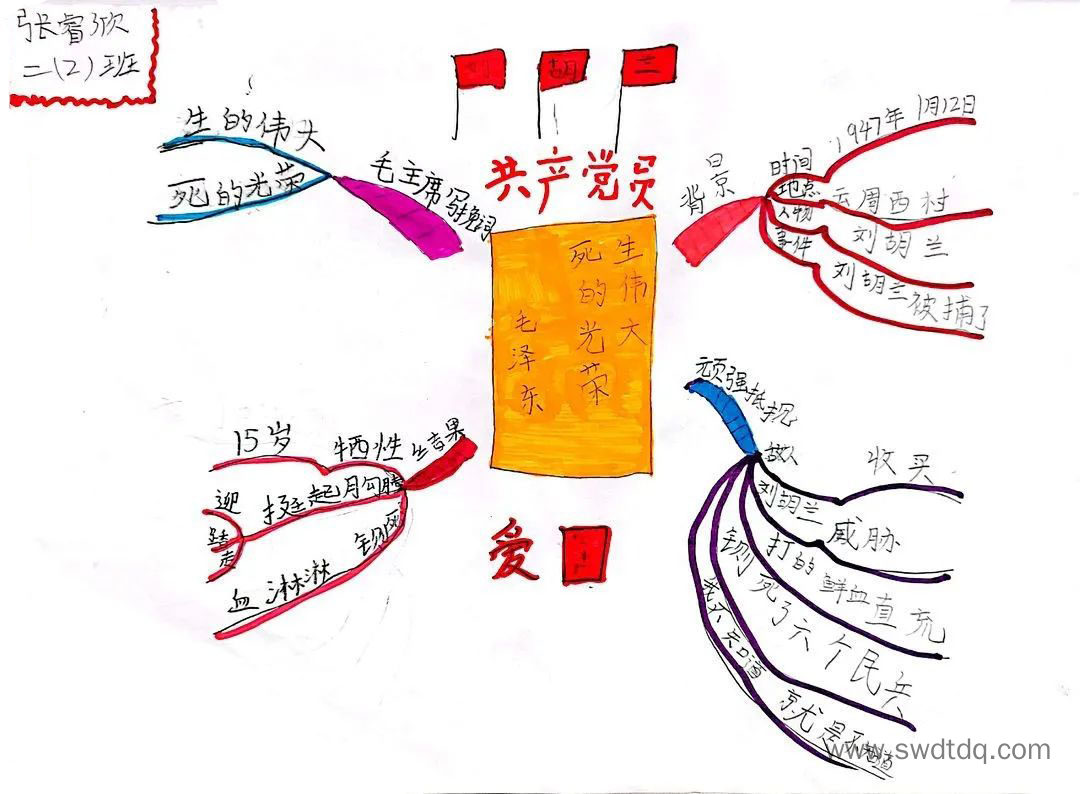 张睿欣
二(2)班
刘 胡 兰
共产党员
生伟大
死的光荣
毛泽东
毛主席写挽词
生的伟大
死的光荣
背景
时间
1947年1月12日
地点
云周西村
人物
刘胡兰
事件
刘胡兰被捕了
顽强抵抗
敌人
收买
刘胡兰
威胁
打的鲜血直流
铡死了六个民兵
就是不知道
结果
牺牲
15岁
挺起胸膛
迎
着
走
铡死
血淋淋
爱
www.swdtdq.com